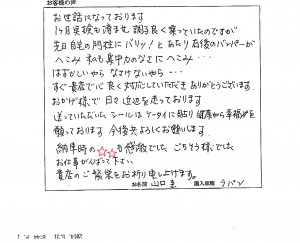 お客様の声
お世話になっております
1ヶ月点検も済ませ 調子良く乗っていたのですが
先日 自宅の門柱に バリッ！と あたり 右後のバンパーが
へこみ 私も集中力のなさに へこみ・・・
はずかしいやら なさけないやら・・・
すぐ貴店で心良く対応していただき ありがとうございます。
おかげ様で 日々 近辺を走っております
送っていただいた シールは ケータイに貼り 健康から幸福がを
願っております 今後共よろしくお願いします。
納車時の ☆☆も感激でした ごちそう様でした
お仕事がんばって下さい
貴店の ご繁栄をお祈り申し上げます。
お名前 山口 購入車種 ラパン